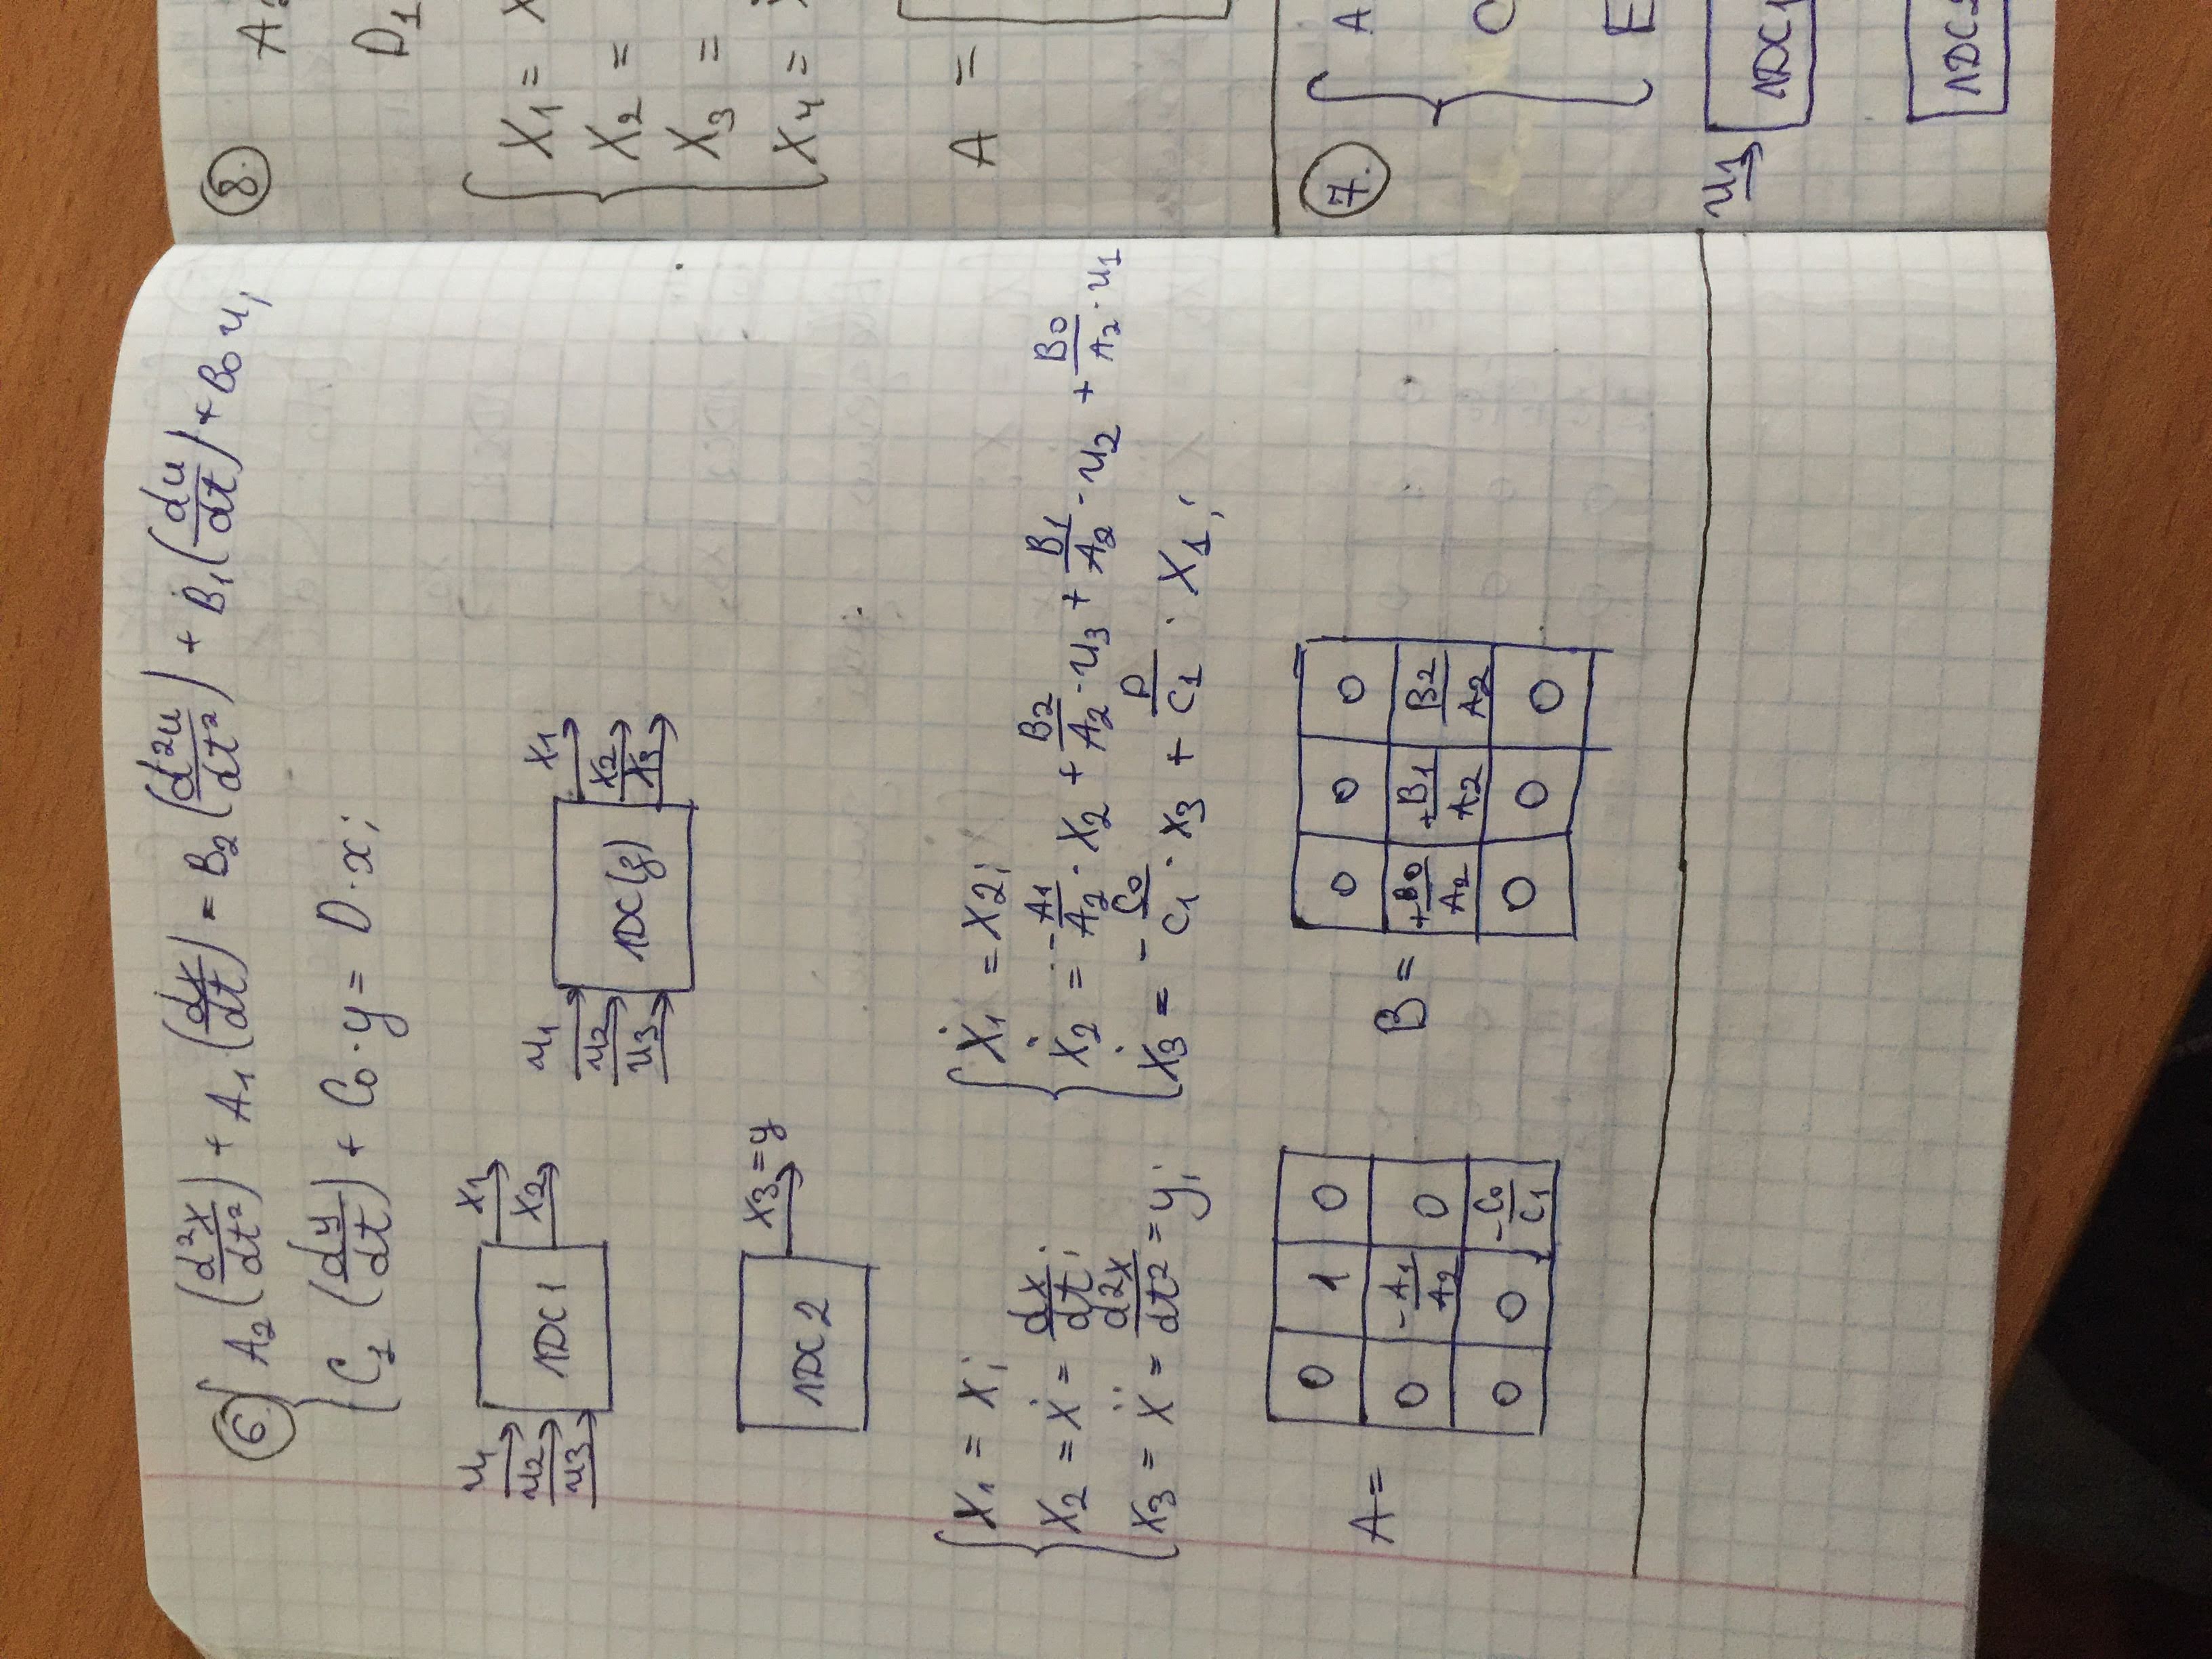 6. { A₂ (d²x/dt²) + A₁ (dx/dt) = B₂ (d²u/dt²) + B₁ (du/dt) + B₀ u;
C₁ (dy/dt) + C₀ · y = D · x;
u₁ ЛДС1 x₁
u₂ x₂
u₃
u₁ ЛДС(z) x₁
u₂ x₂
u₃ x₃
ЛДС2 x₃ = y
{ x₁ = x;
x₂ = ẋ = dx/dt;
x₃ = ẍ = d²x/dt² = y;
{ ẋ₁ = x₂;
ẋ₂ = -A₁/A₂ · x₂ + B₂/A₂ · u₃ + B₁/A₂ · u₂ + B₀/A₂ · u₁
ẋ₃ = -C₀/C₁ · x₃ + D/C₁ · x₁;
A =
0 1 0
0 -A₁/A₂ 0
0 0 -C₀/C₁
B =
0 0 0
+B₀/A₂ +B₁/A₂ B₂/A₂
0 0 0
8.
D₁
{ X₁ =
X₂ =
X₃ =
X₄ =
A =
7. { A
C
E
u₁ ЛДС1
ЛДС2